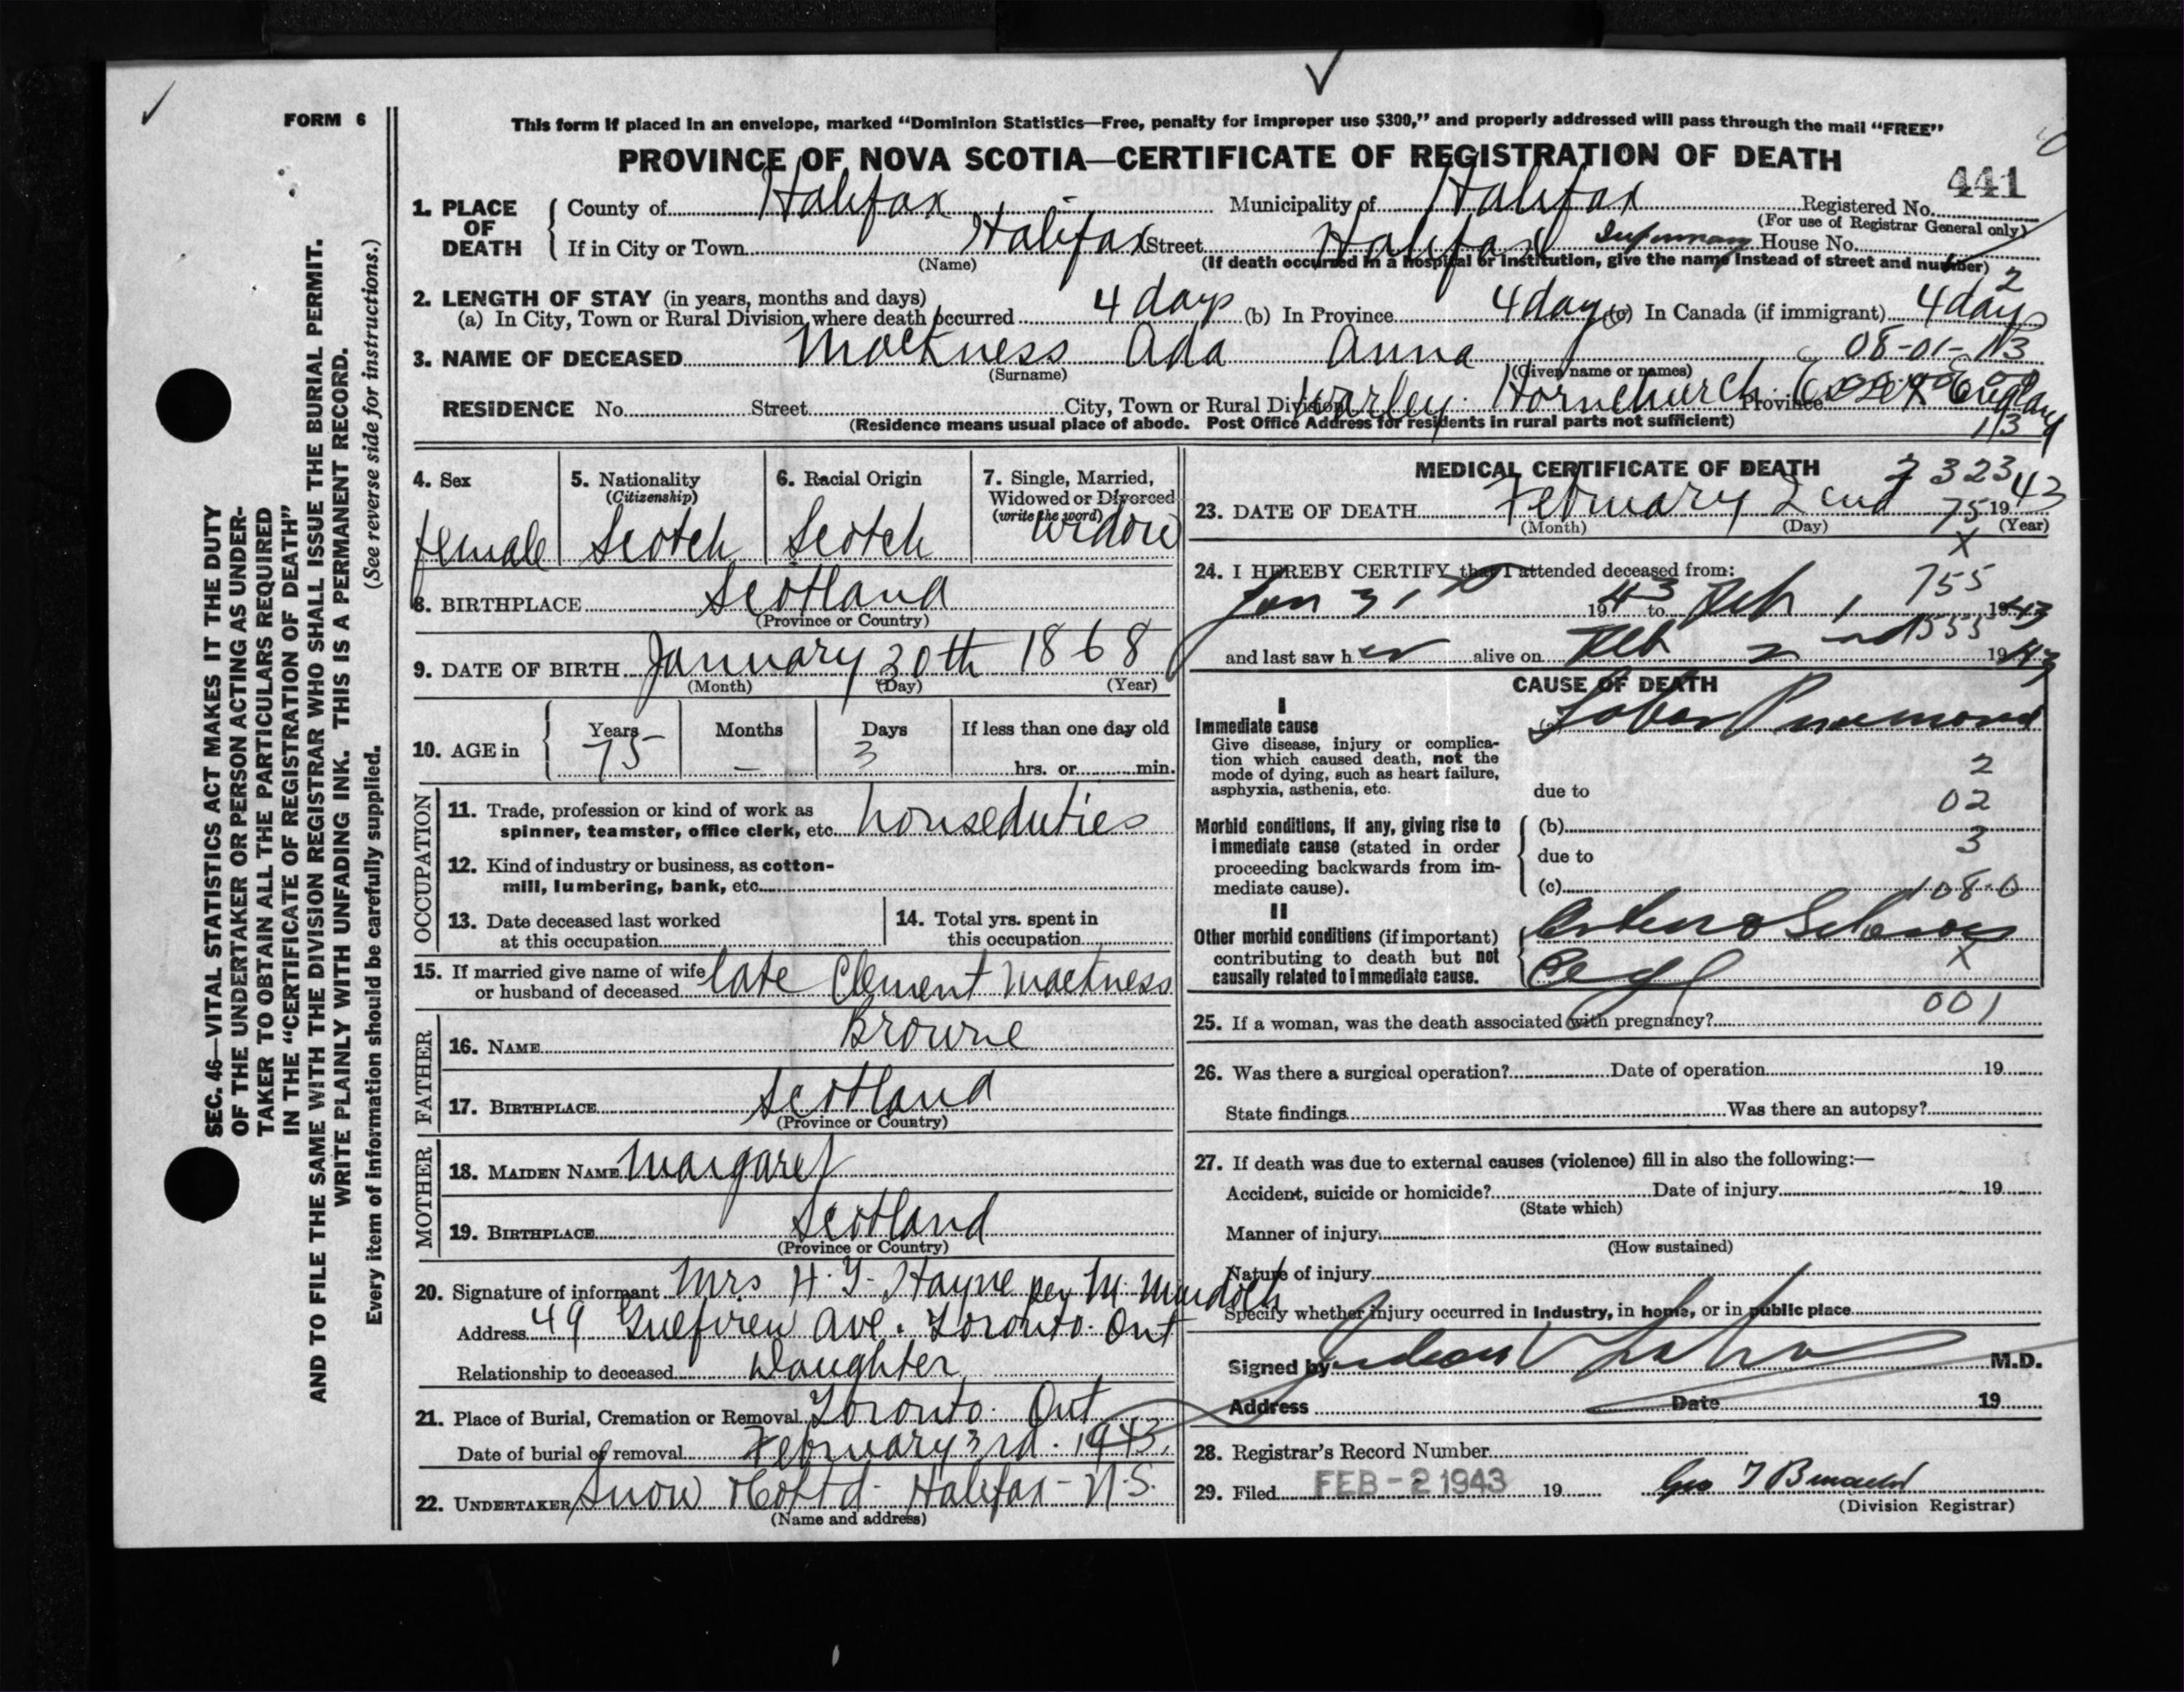 FORM 6
This form if placed in an envelope, marked “Dominion Statistics—Free, penalty for improper use $300,” and properly addressed will pass through the mail “FREE”
PROVINCE OF NOVA SCOTIA—CERTIFICATE OF REGISTRATION OF DEATH
441
1. PLACE OF DEATH { County of Halifax Municipality of Halifax Registered No.
(For use of Registrar General only)
If in City or Town Halifax Street Halifax Infirmary House No.
(Name) (If death occurred in a hospital or institution, give the name instead of street and number)
2
2. LENGTH OF STAY (in years, months and days)
(a) In City, Town or Rural Division where death occurred 4 days (b) In Province 4 days (c) In Canada (if immigrant) 4 days
08-01-113
3. NAME OF DECEASED Mackness Ada Anna
(Surname) (Given name or names)
RESIDENCE No. Street City, Town or Rural Division Warley Hornchurch Province Essex England
(Residence means usual place of abode. Post Office Address for residents in rural parts not sufficient)
113
SEC. 46—VITAL STATISTICS ACT MAKES IT THE DUTY
OF THE UNDERTAKER OR PERSON ACTING AS UNDER-
TAKER TO OBTAIN ALL THE PARTICULARS REQUIRED
IN THE “CERTIFICATE OF REGISTRATION OF DEATH”
AND TO FILE THE SAME WITH THE DIVISION REGISTRAR WHO SHALL ISSUE THE BURIAL PERMIT.
WRITE PLAINLY WITH UNFADING INK. THIS IS A PERMANENT RECORD.
Every item of information should be carefully supplied. (See reverse side for instructions.)
4. Sex female
5. Nationality (Citizenship) Scotch
6. Racial Origin Scotch
7. Single, Married, Widowed or Divorced (write the word) Widow
8. BIRTHPLACE Scotland
(Province or Country)
9. DATE OF BIRTH January 30th 1868
(Month) (Day) (Year)
10. AGE in { Years 75 Months — Days 3 If less than one day old
hrs. or min.
OCCUPATION
11. Trade, profession or kind of work as
spinner, teamster, office clerk, etc. houseduties
12. Kind of industry or business, as cotton-
mill, lumbering, bank, etc.
13. Date deceased last worked
at this occupation
14. Total yrs. spent in
this occupation
15. If married give name of wife
or husband of deceased late Clement Mackness
FATHER
16. NAME Browne
17. BIRTHPLACE Scotland
(Province or Country)
MOTHER
18. MAIDEN NAME Margaret
19. BIRTHPLACE Scotland
(Province or Country)
20. Signature of informant Mrs H. Hayne per M. Murdoch
Address 49 Ave. Toronto. Ont
Relationship to deceased Daughter
21. Place of Burial, Cremation or Removal Toronto. Ont
Date of burial or removal February 3rd. 1943.
22. UNDERTAKER Snow & Co Ltd - Halifax - N.S.
(Name and address)
MEDICAL CERTIFICATE OF DEATH
323
23. DATE OF DEATH February 2end 1943
(Month) (Day) (Year)
75
X
24. I HEREBY CERTIFY that I attended deceased from:
755
Jan 31 1943 to Feb 1 1943
and last saw her alive on Feb 2nd 1943
CAUSE OF DEATH
I
Immediate cause
Give disease, injury or complica-
tion which caused death, not the
mode of dying, such as heart failure,
asphyxia, asthenia, etc.
(a) Lobar Pneumonia
2
due to
02
Morbid conditions, if any, giving rise to
immediate cause (stated in order
proceeding backwards from im-
mediate cause).
(b)
3
due to
(c)
108.0
II
Other morbid conditions (if important)
contributing to death but not
causally related to immediate cause.
Arterio Sclerosis
X
001
25. If a woman, was the death associated with pregnancy?
26. Was there a surgical operation? Date of operation 19
State findings Was there an autopsy?
27. If death was due to external causes (violence) fill in also the following:—
Accident, suicide or homicide? Date of injury 19
(State which)
Manner of injury
(How sustained)
Nature of injury
Specify whether injury occurred in Industry, in home, or in public place
Signed by M.D.
Address Date 19
28. Registrar's Record Number
29. Filed FEB - 2 1943 19
(Division Registrar)